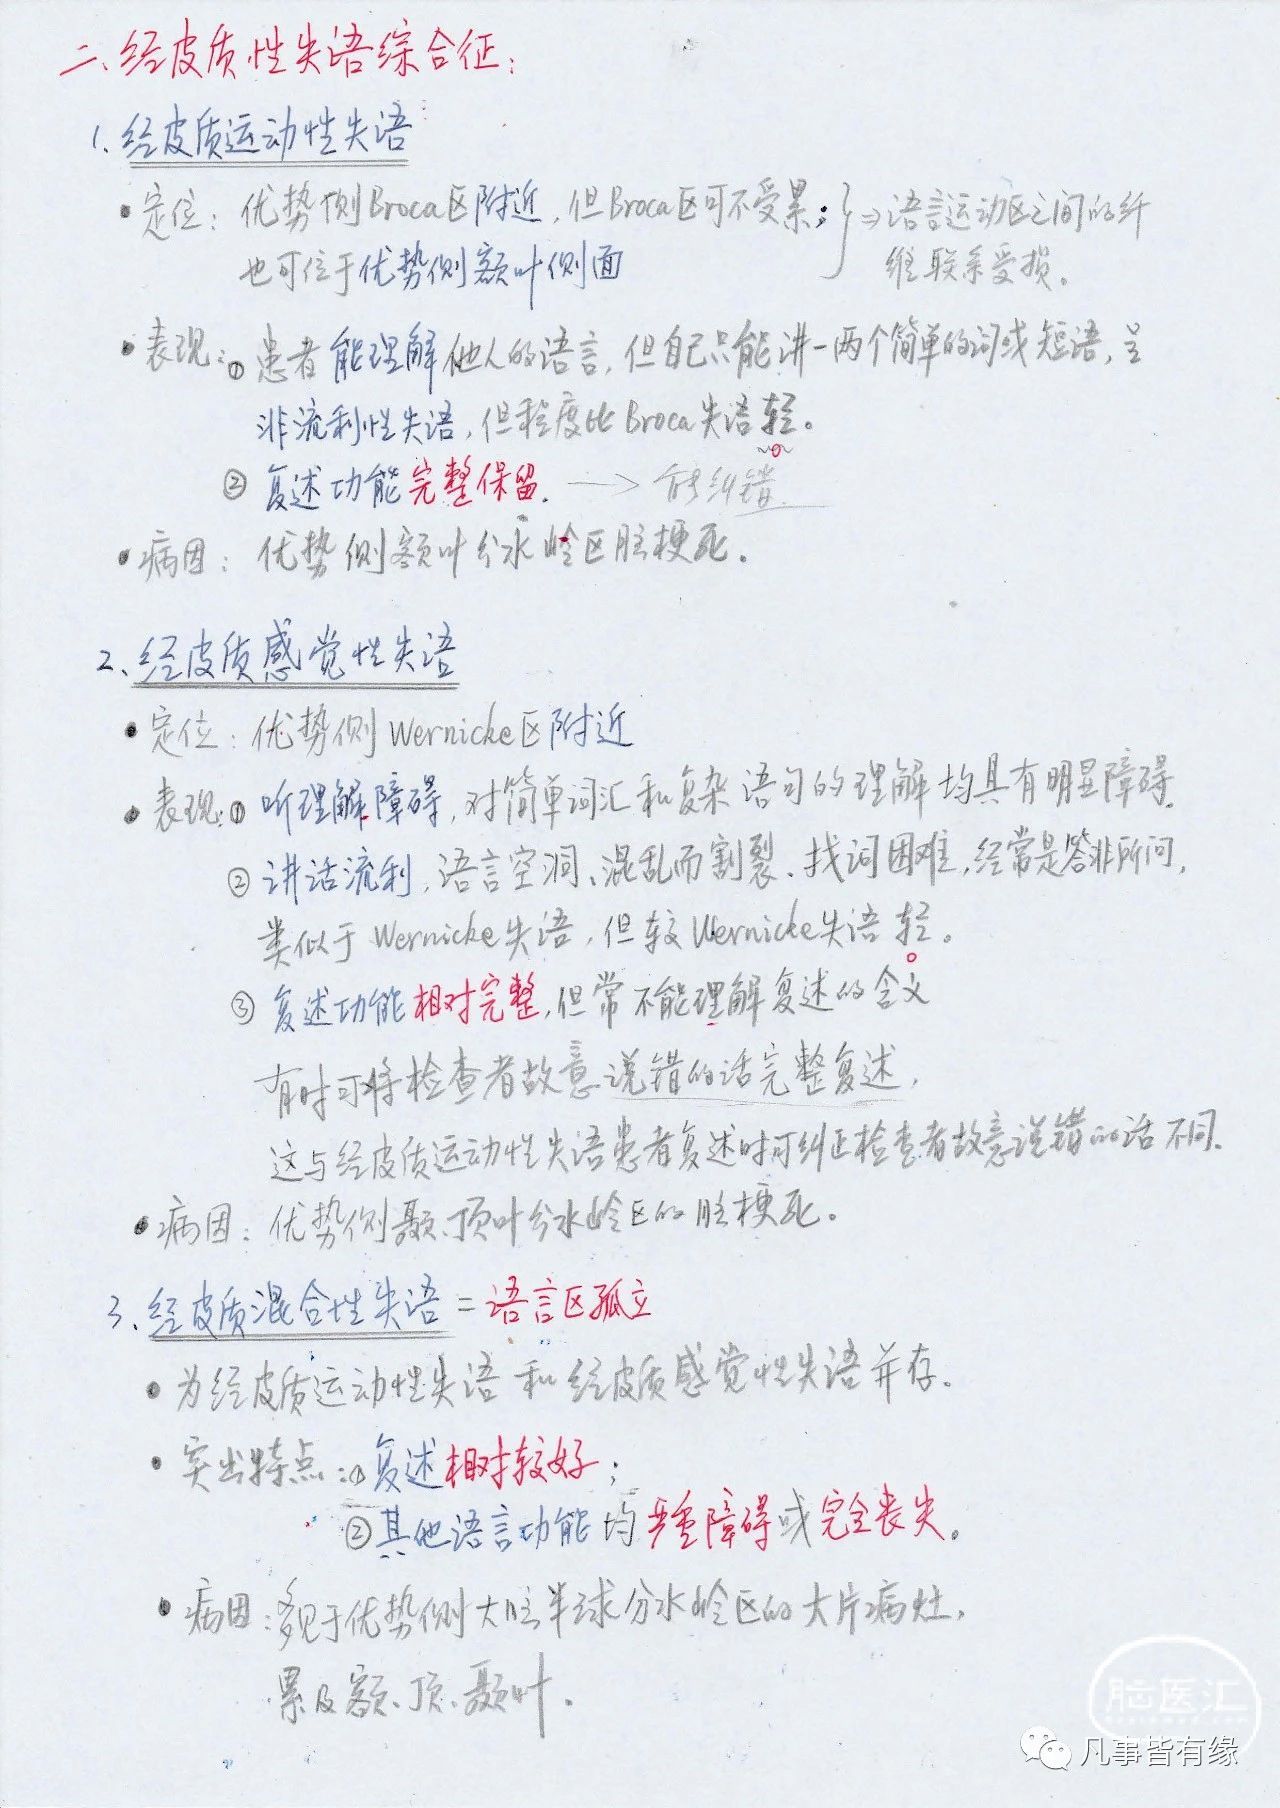 二、经皮质性失语综合征：
1、经皮质运动性失语
•定位：优势侧Broca区附近，但Broca区可不受累；}⇒语言运动区之间的纤
也可位于优势侧额叶侧面
维联系受损。
•表现：①患者能理解他人的语言，但自己只能讲一两个简单的词或短语，呈
非流利性失语，但程度比Broca失语轻。
②复述功能完整保留。→能纠错
•病因：优势侧额叶分水岭区脑梗死。
2、经皮质感觉性失语
•定位：优势侧Wernicke区附近
•表现：①听理解障碍，对简单词汇和复杂语句的理解均具有明显障碍。
②讲话流利，语言空洞、混乱而割裂、找词困难，经常是答非所问，
类似于Wernicke失语，但较Wernicke失语轻。
③复述功能相对完整，但常不能理解复述的含义
有时可将检查者故意说错的话完整复述，
这与经皮质运动性失语患者复述时可纠正检查者故意说错的话不同。
•病因：优势侧颞、顶叶分水岭区的脑梗死。
3、经皮质混合性失语=语言区孤立
•为经皮质运动性失语和经皮质感觉性失语并存。
•突出特点：①复述相对较好；
②其他语言功能均严重障碍或完全丧失。
•病因：多见于优势侧大脑半球分水岭区的大片病灶，
累及额、顶、颞叶。
脑医汇
凡事皆有缘